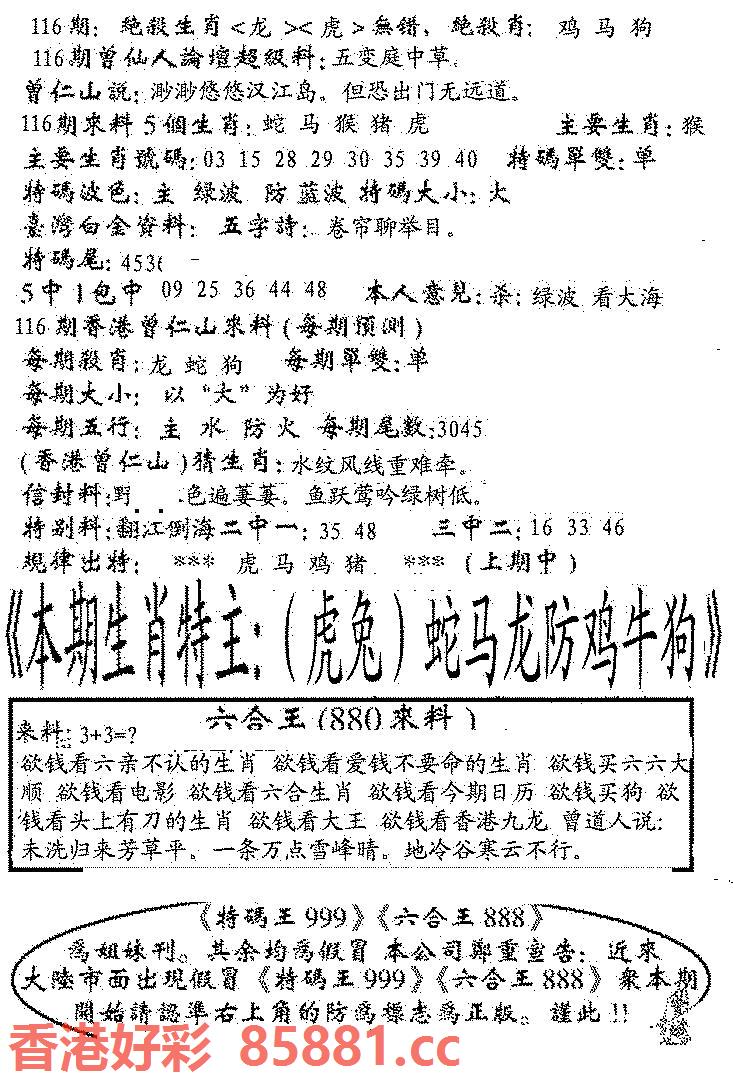 116期：绝殺生肖<龙><虎>無错，绝殺肖：鸡 马 狗
116期曾仙人論壇超級料：五变庭中草。
曾仁山説：渺渺悠悠汉江岛。但恐出门无远道。
116期來料5個生肖：蛇 马 猴 猪 虎 主要生肖：猴
主要生肖號碼：03 15 28 29 30 35 39 40 特碼單雙：单
特碼波色：主 绿波 防 蓝波 特碼大小：大
臺灣白金資料： 五字詩：卷帘聊举目。
特碼尾：4536
5中1包中 09 25 36 44 48 本人意見：杀：绿波 看大海
116期香港曾仁山來料(每期預測)
每期殺肖：龙 蛇 狗 每期單雙：单
每期大小： 以“大”为好
每期五行： 主 水 防 火 每期尾數：3045
(香港曾仁山)猜生肖：水纹风线重难牵。
信封料：野 色遍萋萋。鱼跃莺吟绿树低。
特别料：翻江倒海二中一：35 48 三中二：16 33 46
規律出特： *** 虎 马 鸡 猪 *** (上期中)
《本期生肖特主：（虎兔）蛇马龙防鸡牛狗》
六合王(880來料)
来料：3+3=?
欲钱看六亲不认的生肖 欲钱看爱钱不要命的生肖 欲钱买六六大
顺 欲钱看电影 欲钱看六合生肖 欲钱看今期日历 欲钱买狗 欲
钱看头上有刀的生肖 欲钱看大王 欲钱看香港九龙 曾道人说：
未洗归来芳草平。一条万点雪峰晴。地冷谷寒云不行。
《特碼王999》《六合王888》
為姐妹刊。其余均為假冒 本公司鄭重宣告：近來
大陸市面出現假冒《特碼王999》《六合王888》衆本期
開始請認準右上角的防為標志為正版。謹此!!
香港好彩 85881.cc